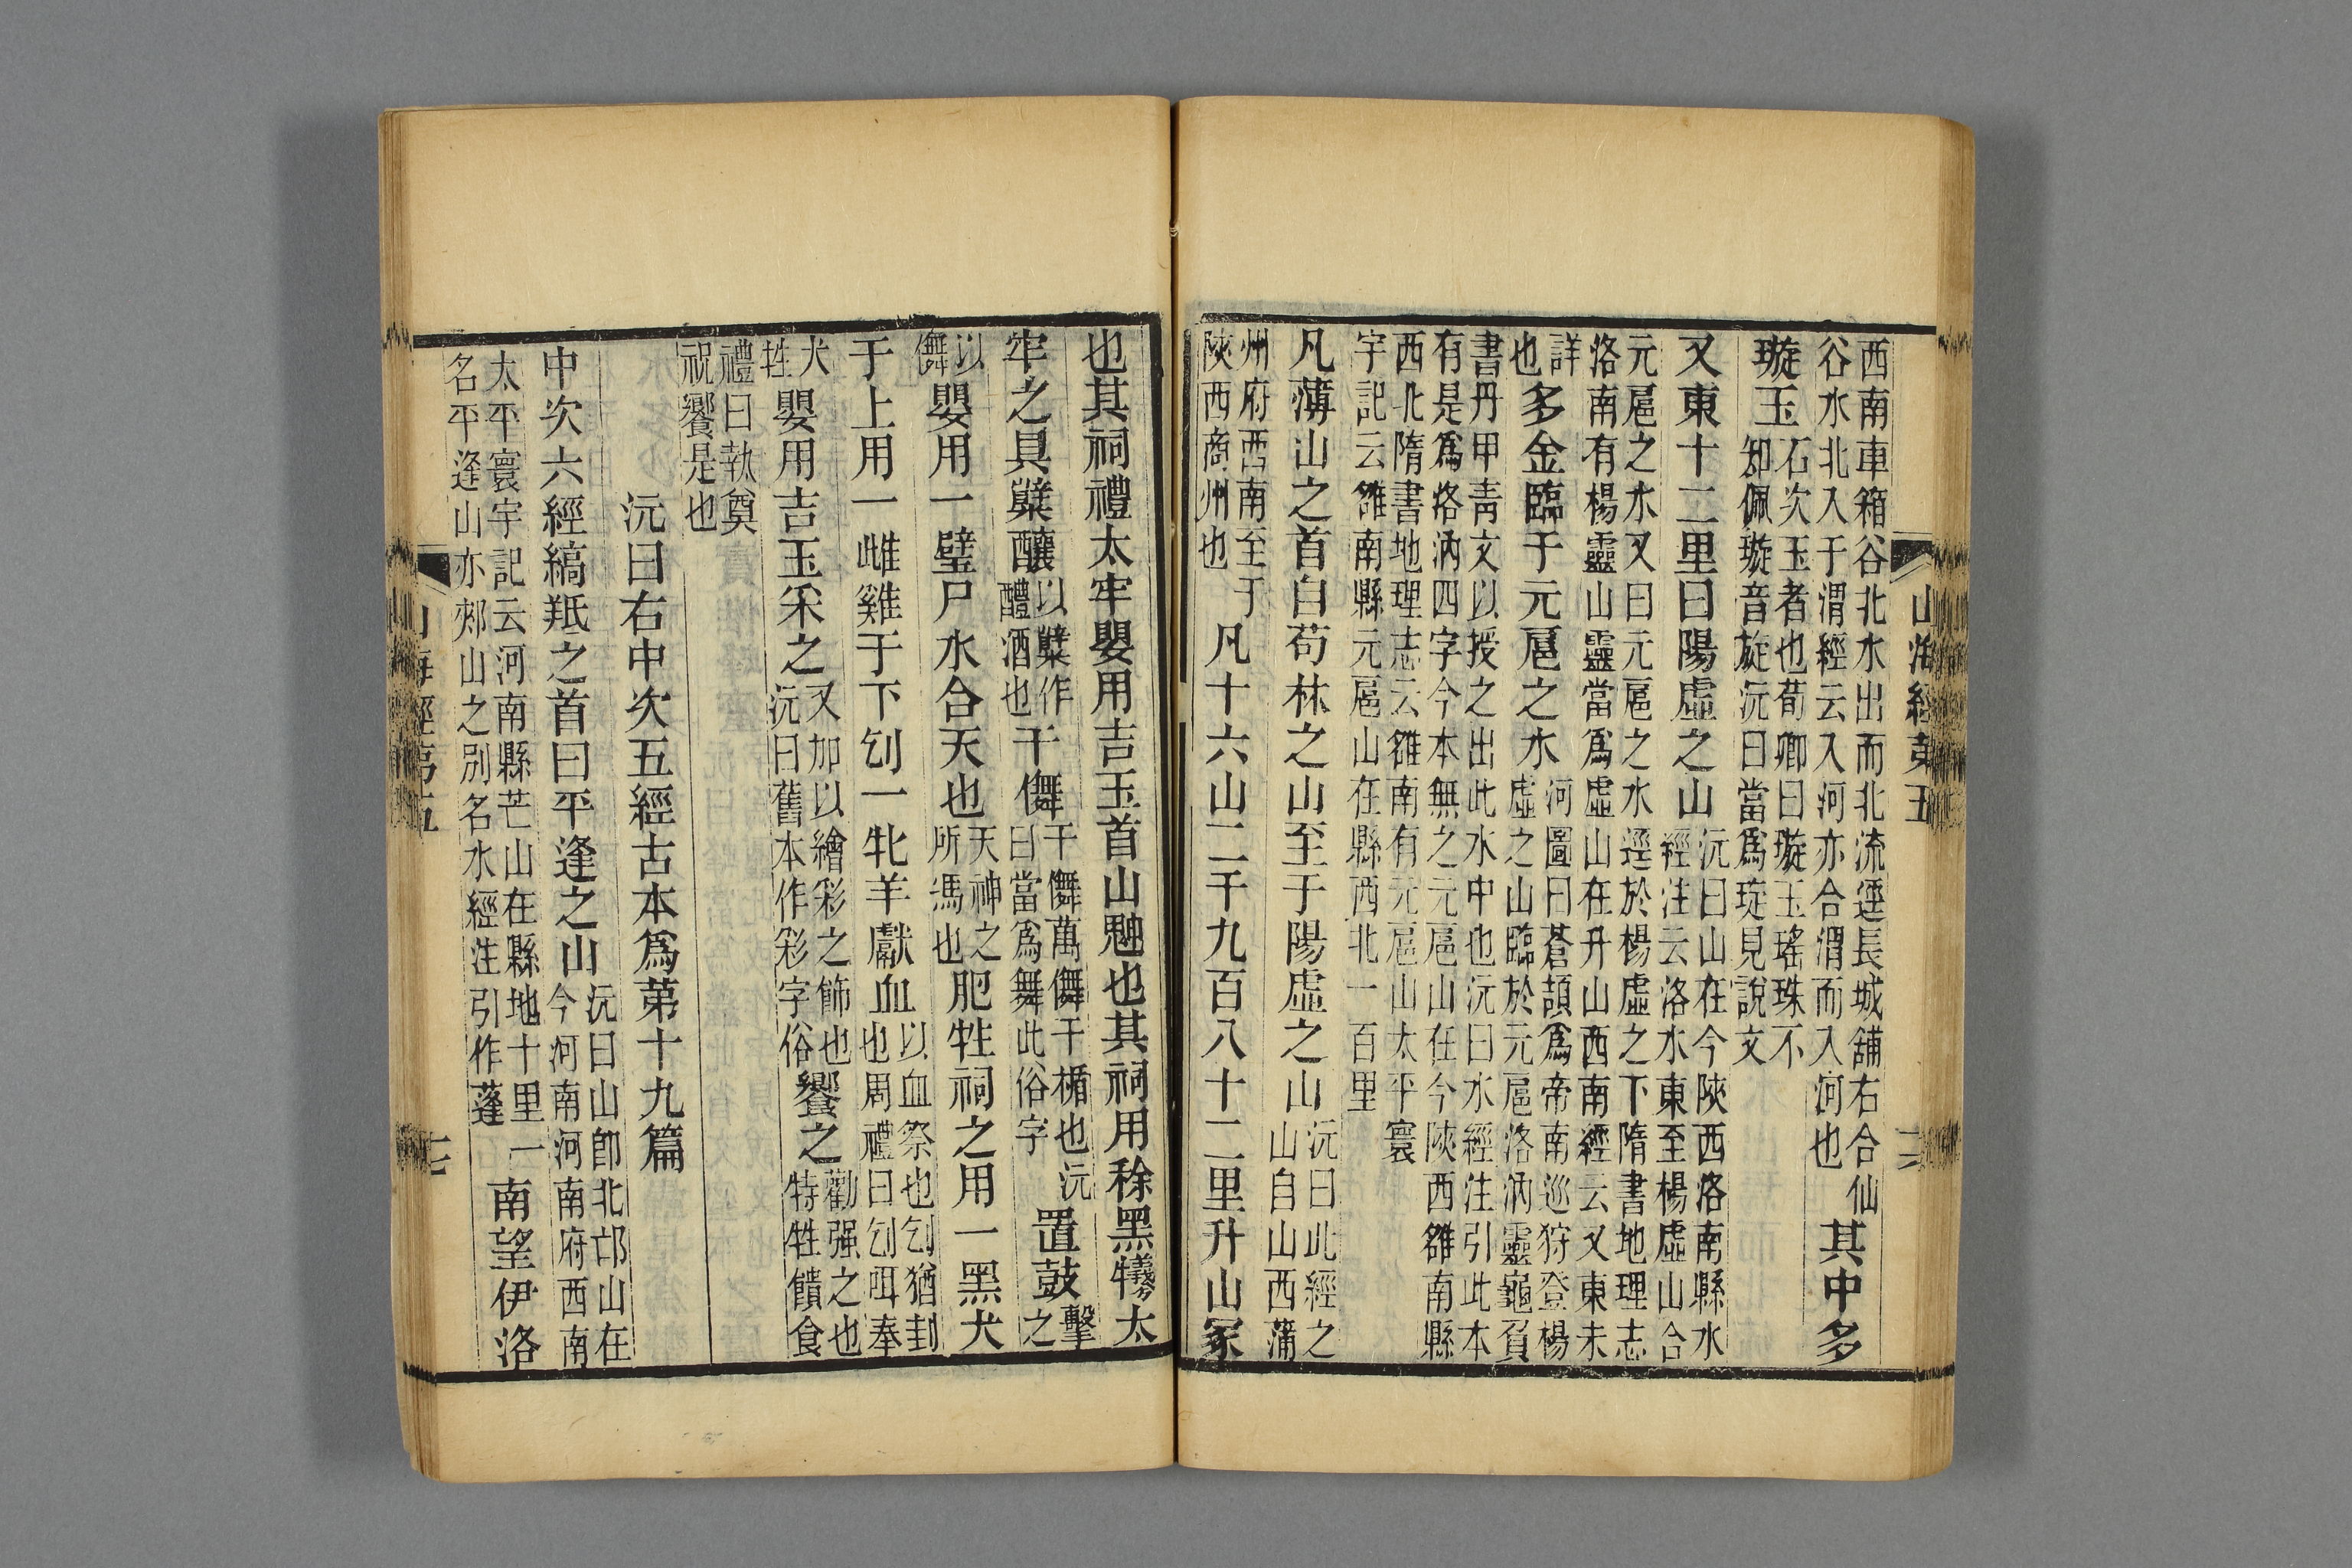 山海經第五
西南車箱谷北水出而北流逕長城舖右合仙
谷水北入于渭經云入河亦合渭而入河也
其中多
璇玉
石次玉者也荀卿曰璇玉瑤珠不
知佩璇音旋沅曰當爲琁見說文
又東十二里曰陽虛之山
沅曰山在今陝西洛南縣水
經注云洛水東至楊虛山合
元扈之水又曰元扈之水逕於楊虛之下隋書地理志
洛南有楊靈山靈當爲虛山在升山西南經云又東未
詳
也
多金臨于元扈之水
河圖曰蒼頡爲帝南巡狩登楊
虛之山臨於元扈洛汭靈龜負
書丹甲靑文以授之出此水中也沅曰水經注引此本
有是爲洛汭四字今本無之元扈山在今陝西雒南縣
西北隋書地理志云雒南有元扈山太平寰
宇記云雒南縣元扈山在縣西北一百里
凡薄山之首自苟林之山至于陽虛之山
沅曰此經之
山自山西蒲
州府西南至于
陝西商州也
凡十六山二千九百八十二里升山冢
也其祠禮太牢嬰用吉玉首山䰠也其祠用稌黑犧太
牢之具糵釀
以糵作
醴酒也
干儛
干儛萬儛干楯也沅
曰當爲舞此俗字
置鼓
擊
之
以
儛
嬰用一璧尸水合天也
天神之
所馮也
肥牲祠之用一黑犬
于上用一雌雞于下刉一牝羊獻血
以血祭也刉猶刲
也周禮曰刉咡奉
犬
牲
嬰用吉玉采之
又加以繒彩之飾也
沅曰舊本作彩字俗
饗之
勸强之也
特牲饋食
禮曰執奠
祝饗是也
沅曰右中次五經古本爲第十九篇
中次六經縞羝之首曰平逢之山
沅曰山卽北邙山在
今河南河南府西南
太平寰宇記云河南縣芒山在縣地十里一
名平逢山亦郟山之別名水經注引作蓬
南望伊洛
七